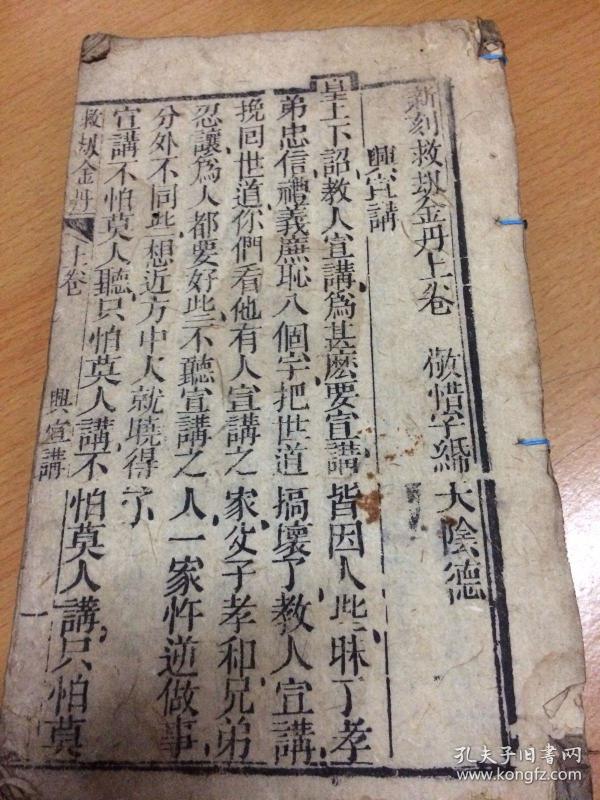 新刻救劫金丹上卷 敬惜字紙大陰德
興宣講
皇上下詔教人宣講爲甚麽要宣講皆因人些昧了孝
弟忠信禮義廉恥八個字把世道搞壞了教人宣講
挽回世道你們看他有人宣講之家父子孝和兄弟
忍讓爲人都要好些不聽宣講之人一家忤逆做事
分外不同些想近方中人就曉得了
宣講不怕莫人聽只怕莫人講不怕莫人講只怕莫
救劫金丹 上卷 興宣講 一
孔夫子旧书网
www.kongfz.com